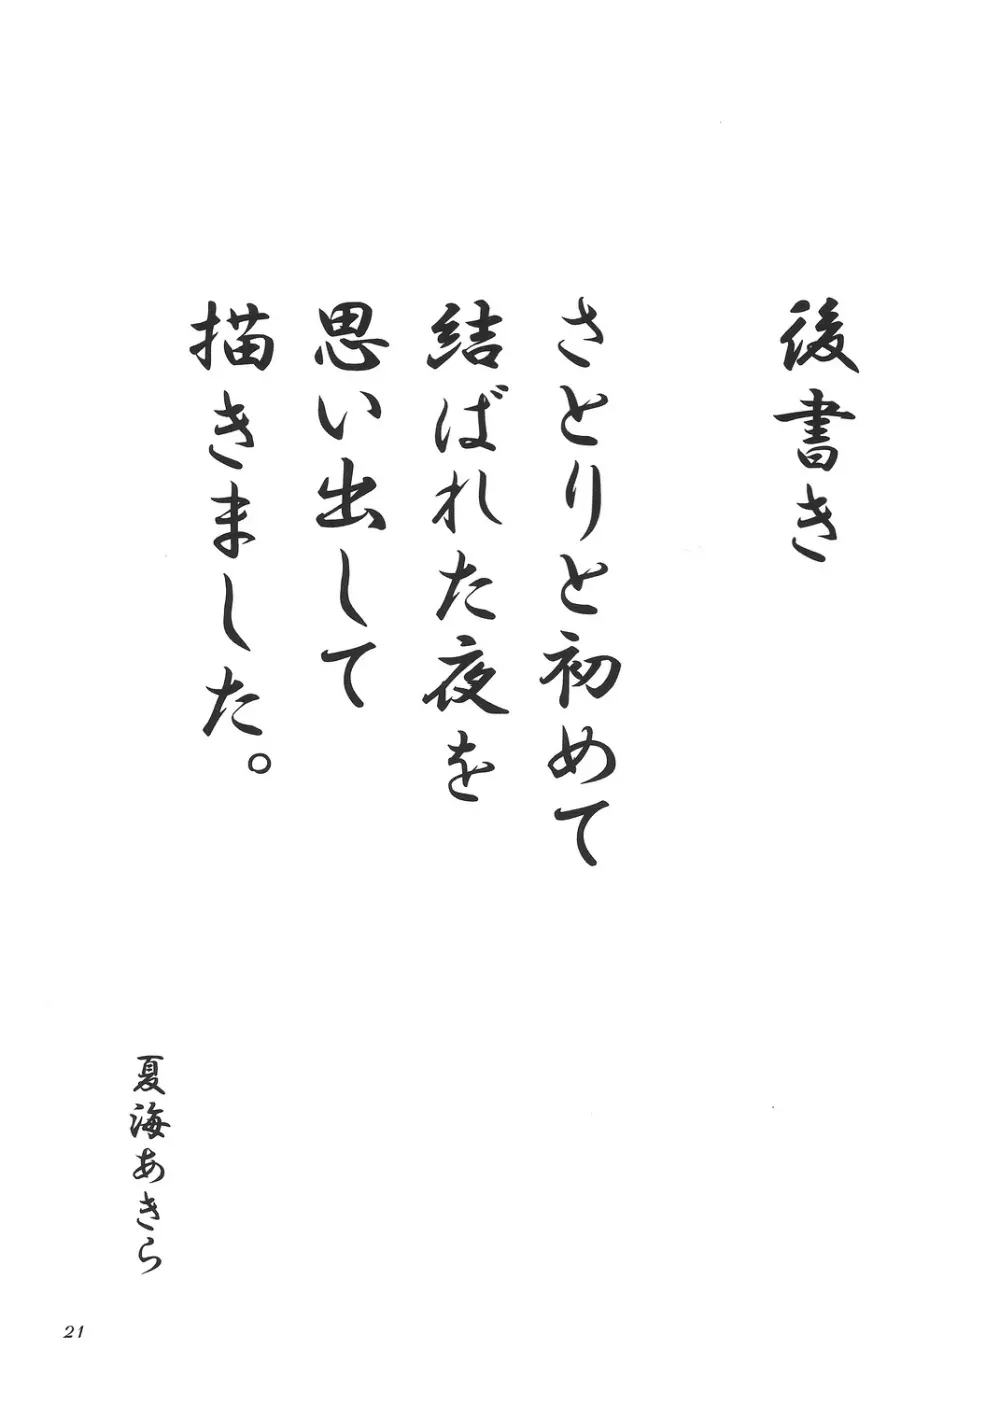 後書き
さとりと初めて
結ばれた夜を
思い出して
描きました。
夏海あきら
21